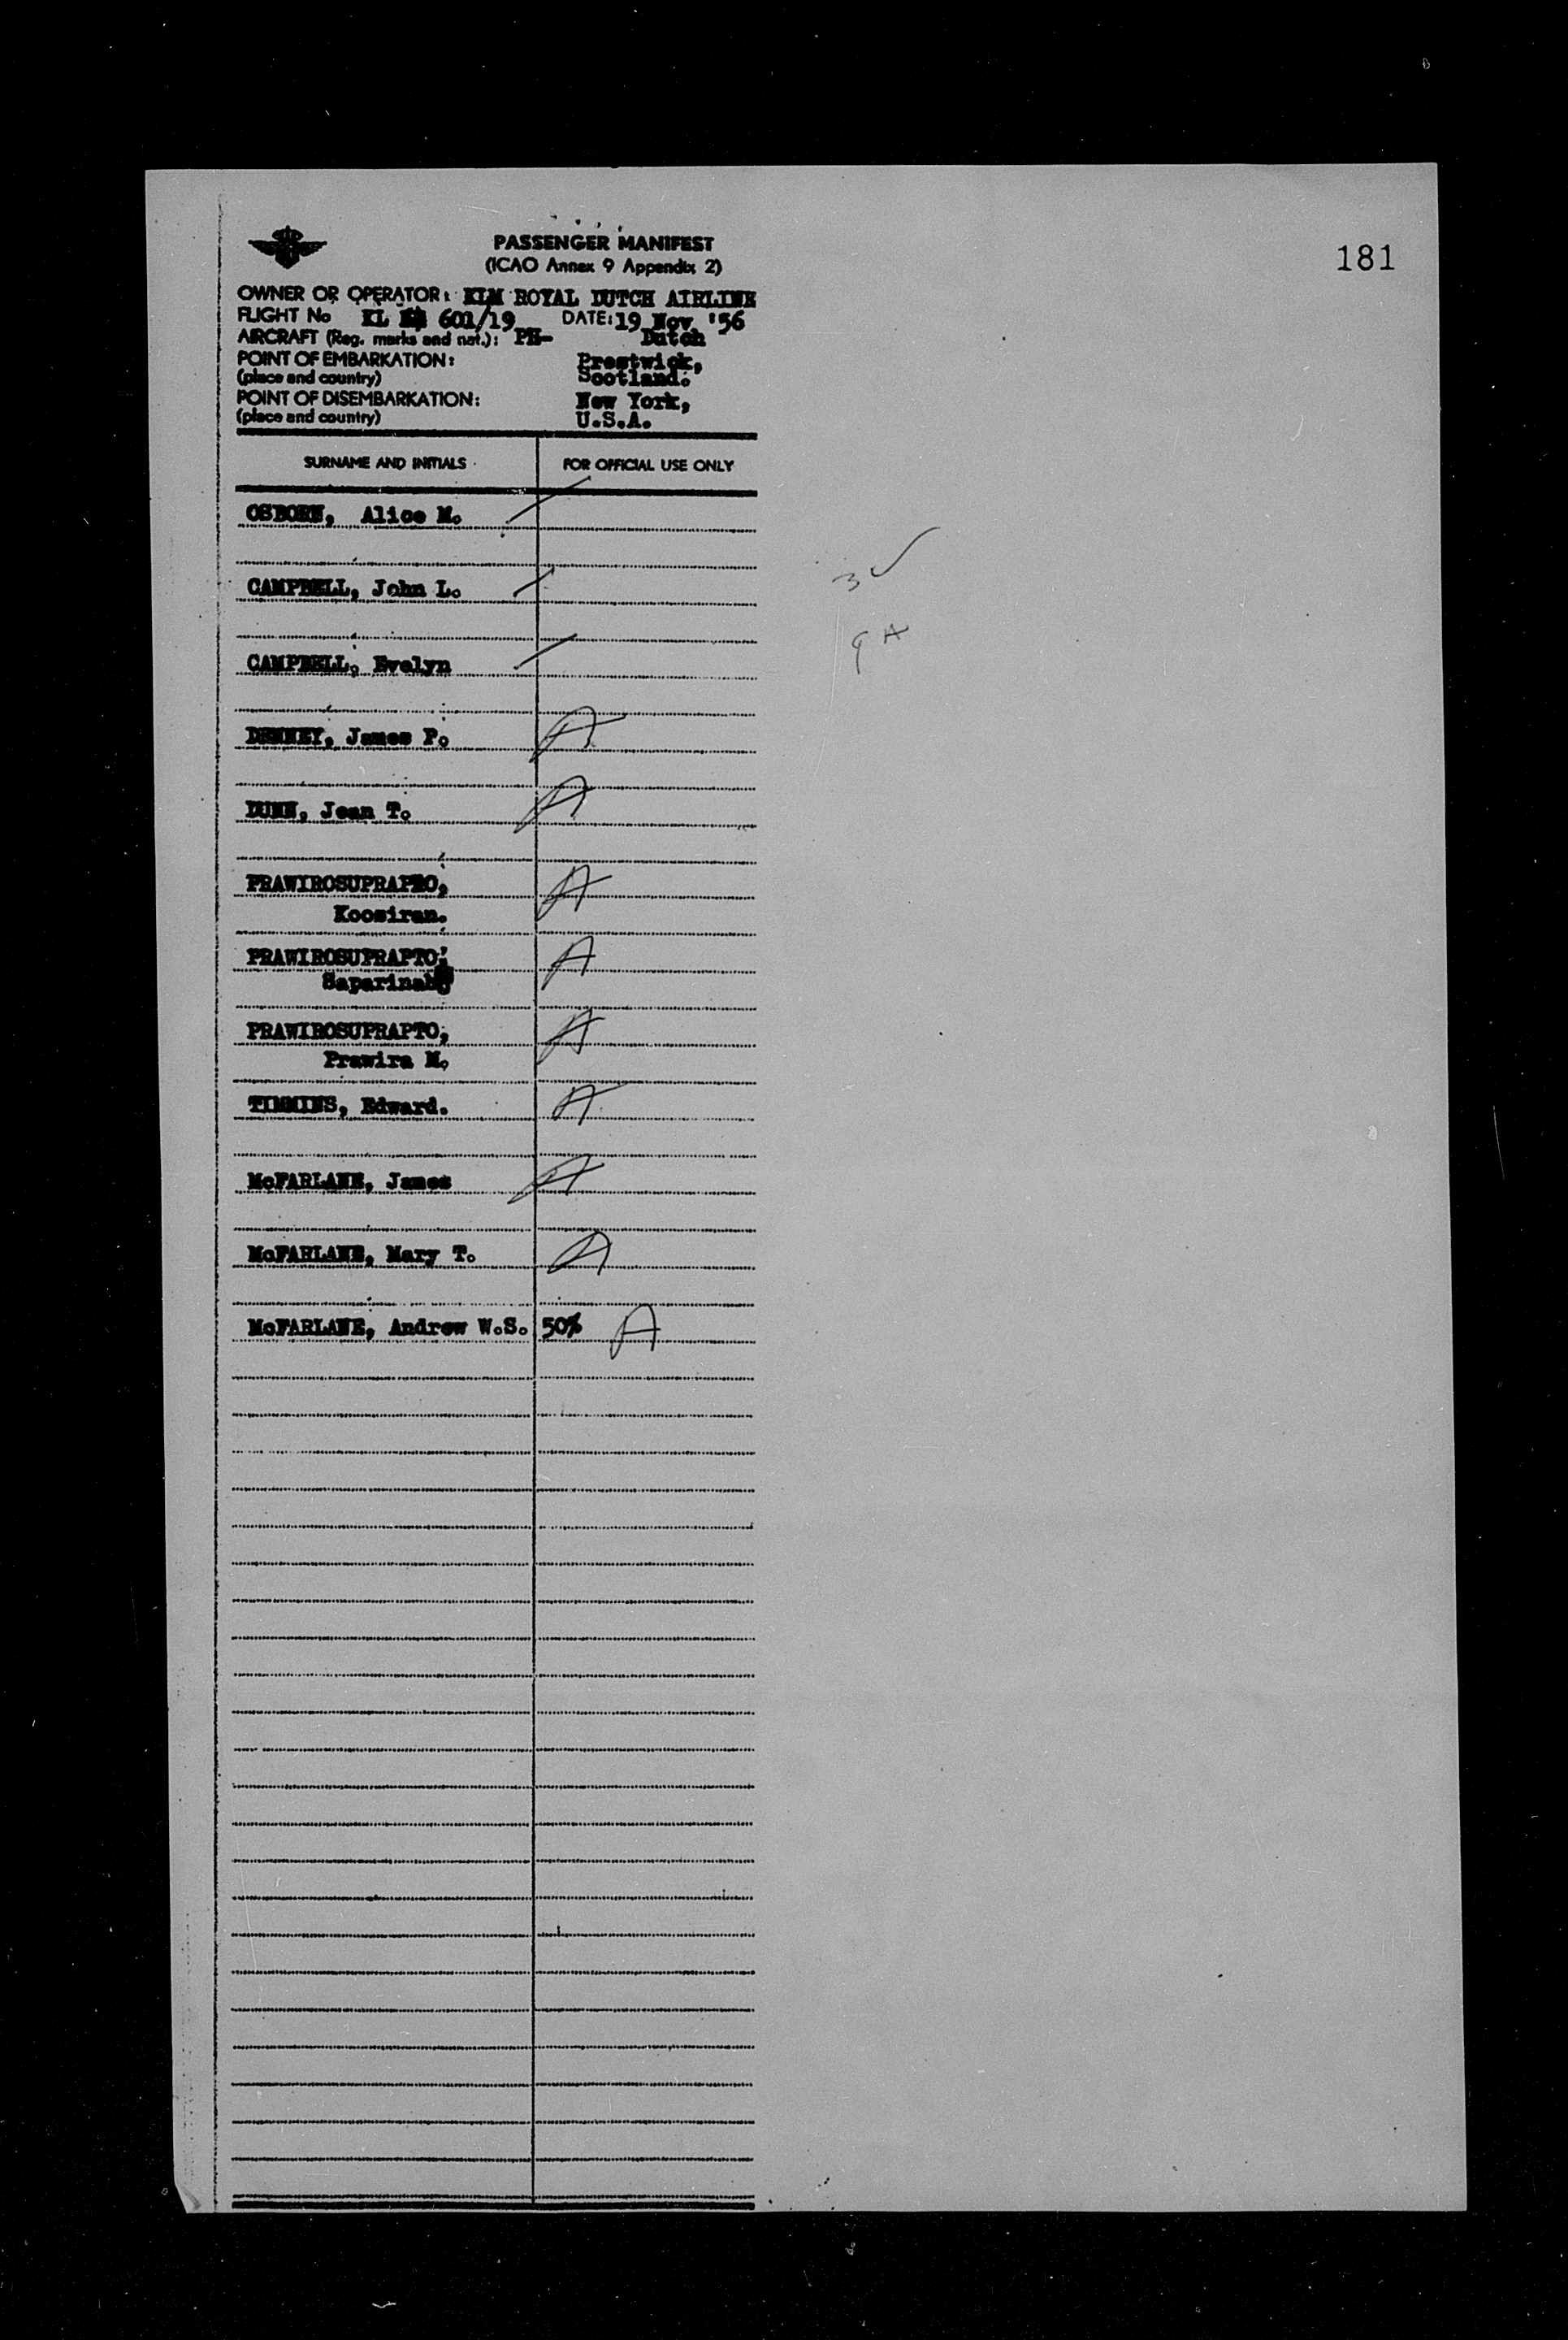 PASSENGER MANIFEST
(ICAO Annex 9 Appendix 2)
181
OWNER OR OPERATOR: KLM ROYAL DUTCH AIRLINE
FLIGHT No KL 601/19 DATE: 19 Nov '56
AIRCRAFT (Reg. marks and nat.): PH- Dutch
POINT OF EMBARKATION: Prestwick,
(place and country) Scotland.
POINT OF DISEMBARKATION: New York,
(place and country) U.S.A.
SURNAME AND INITIALS FOR OFFICIAL USE ONLY
OSBORN, Alice M.
3 ✓
CAMPBELL, John L.
9 A
CAMPBELL, Evelyn
DENNEY, James P. A
DUNN, Jean T. A
PRAWIROSUPRAPTO, A
Koosiran.
PRAWIROSUPRAPTO, A
Saparinah
PRAWIROSUPRAPTO, A
Prawira M.
TIMMINS, Edward. A
McFARLANE, James A
McFARLANE, Mary T. A
McFARLANE, Andrew W.S. 50% A